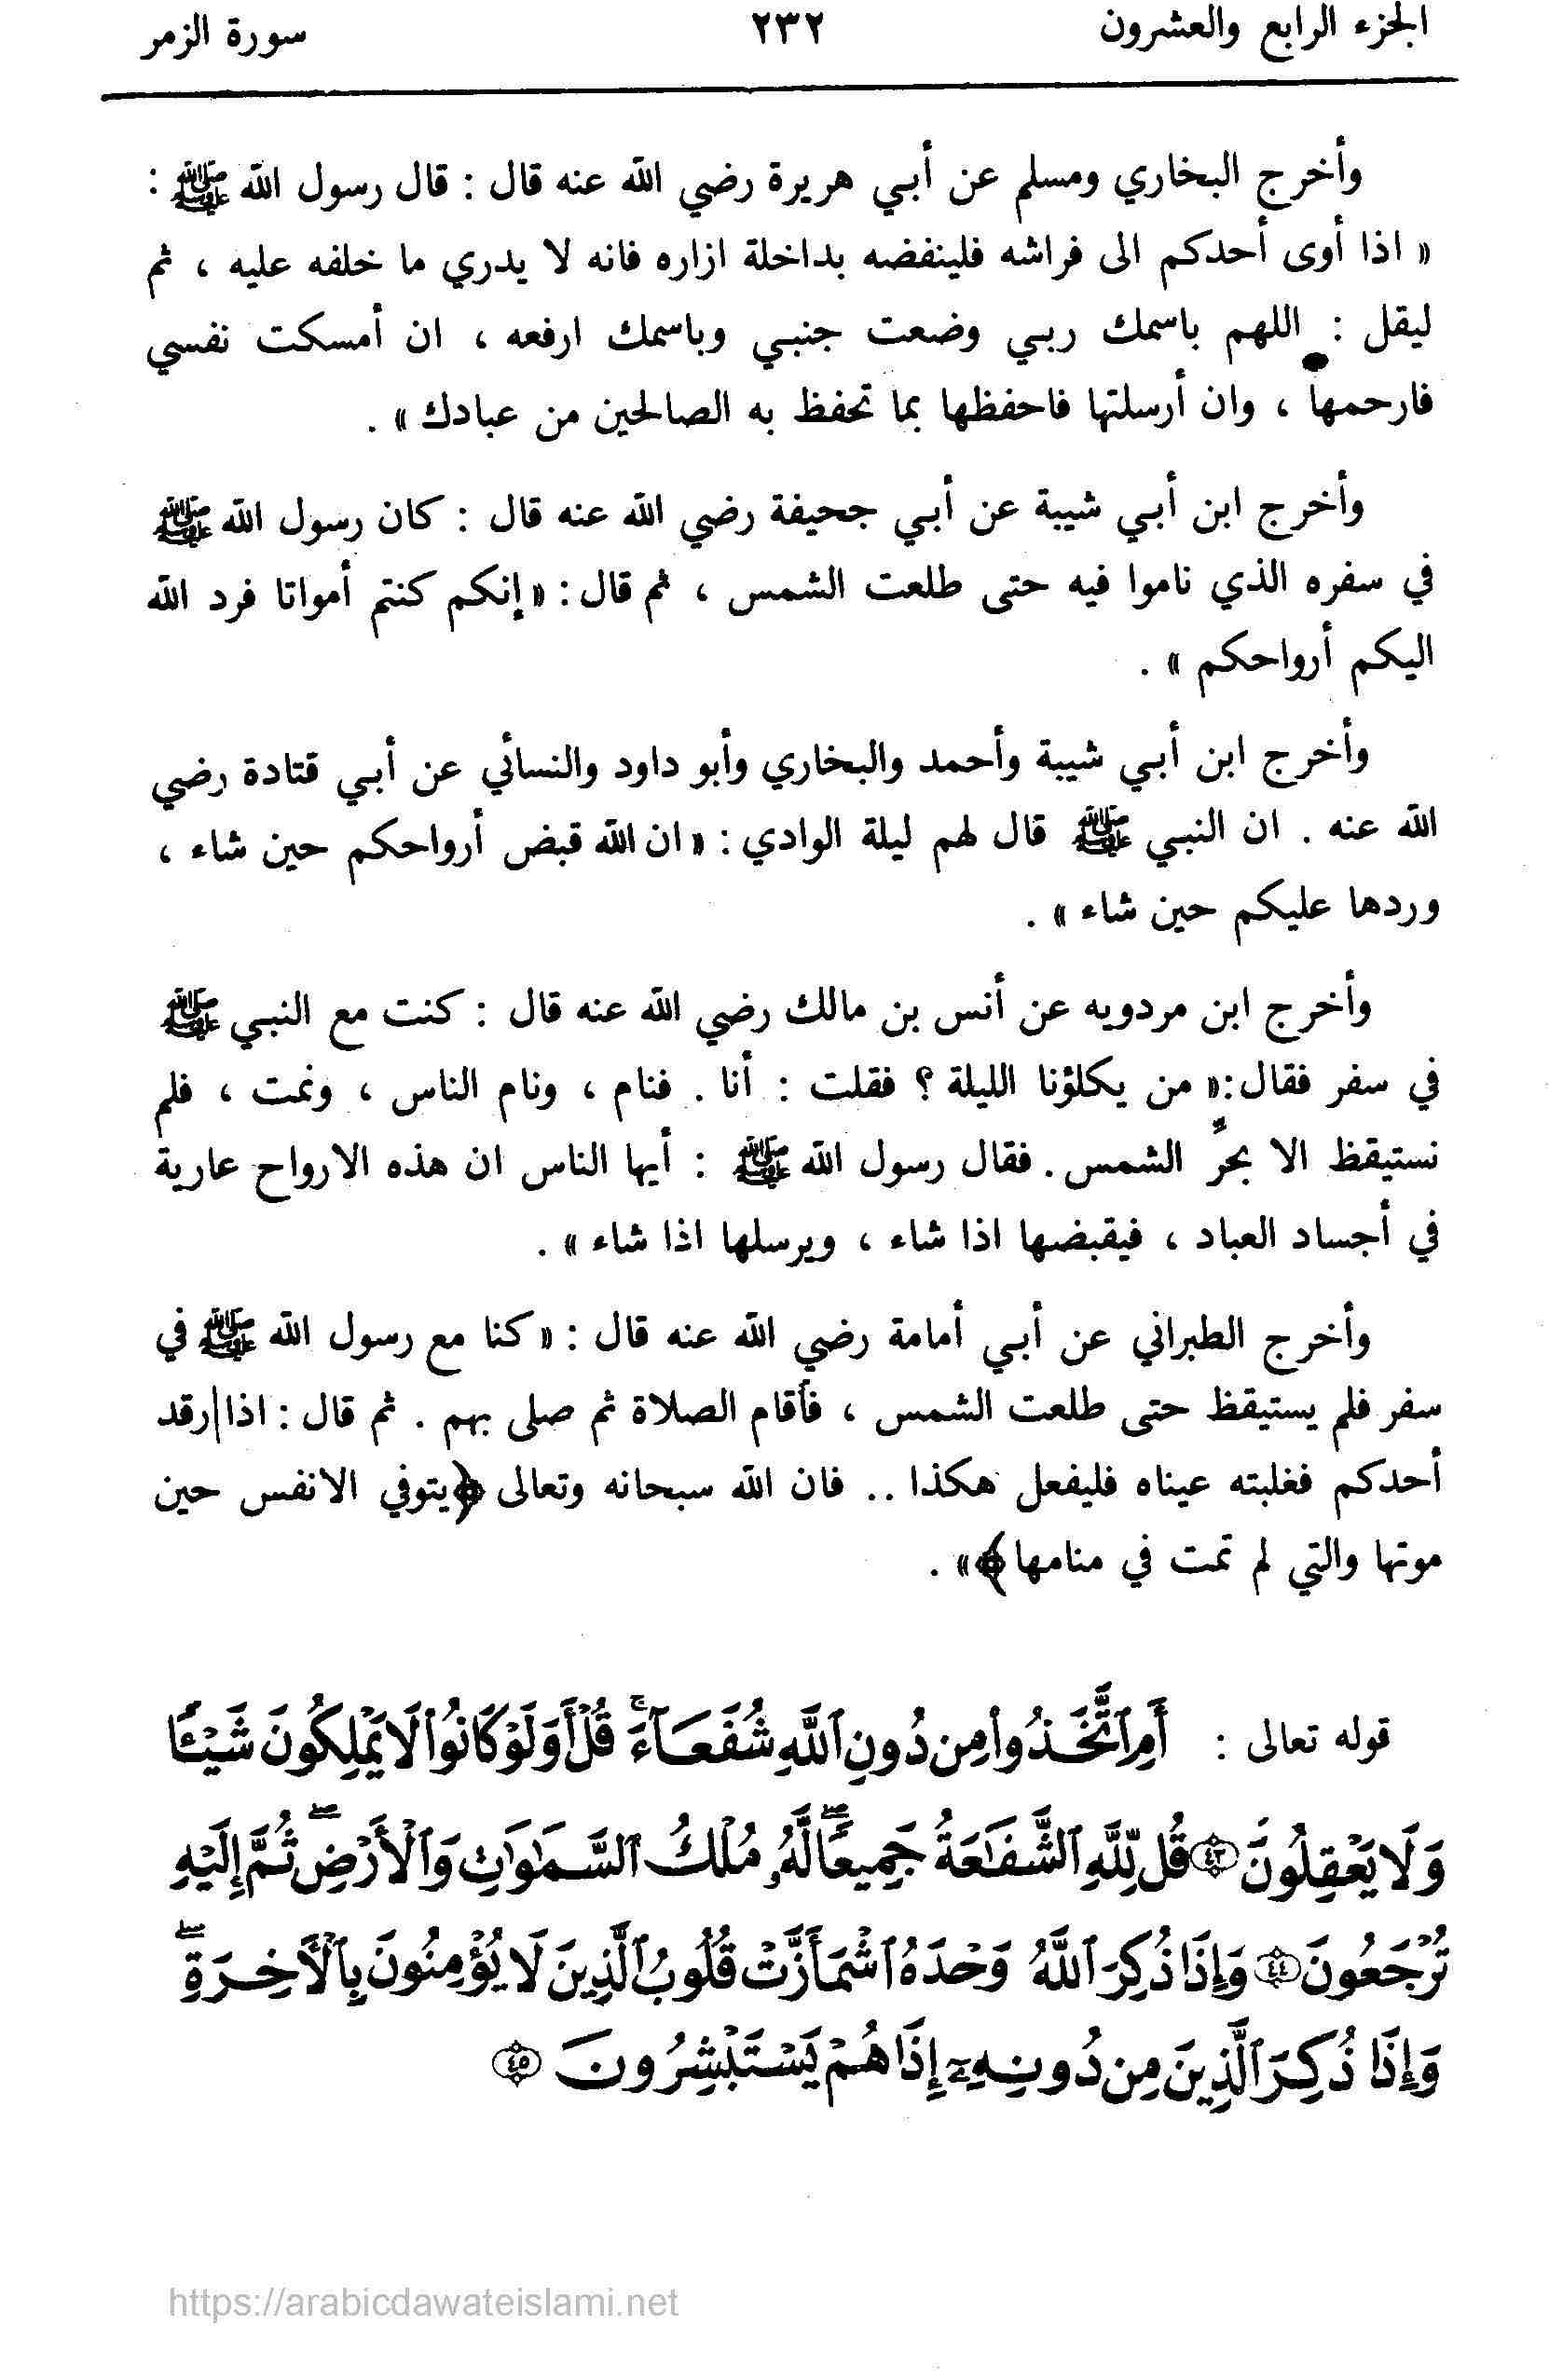 الجزء الرابع والعشرون ٢٣٢ سورة الزمر
وأخرج البخاري ومسلم عن أبي هريرة رضي الله عنه قال : قال رسول الله ﷺ :
« اذا أوى أحدكم الى فراشه فلينفضه بداخلة ازاره فانه لا يدري ما خلفه عليه ، ثم
ليقل : اللهم باسمك ربي وضعت جنبي وباسمك ارفعه ، ان أمسكت نفسي
فارحمها ، وان أرسلتها فاحفظها بما تحفظ به الصالحين من عبادك » .
وأخرج ابن أبي شيبة عن أبي جحيفة رضي الله عنه قال : كان رسول الله ﷺ
في سفره الذي ناموا فيه حتى طلعت الشمس ، ثم قال : « إنكم كنتم أمواتا فرد الله
اليكم أرواحكم » .
وأخرج ابن أبي شيبة وأحمد والبخاري وأبو داود والنسائي عن أبي قتادة رضي
الله عنه . ان النبي ﷺ قال لهم ليلة الوادي : « ان الله قبض أرواحكم حين شاء ،
وردها عليكم حين شاء » .
وأخرج ابن مردويه عن أنس بن مالك رضي الله عنه قال : كنت مع النبي ﷺ
في سفر فقال : « من يكلؤنا الليلة ؟ فقلت : أنا . فنام ، ونام الناس ، ونمت ، فلم
نستيقظ الا بحرِّ الشمس . فقال رسول الله ﷺ : أيها الناس ان هذه الارواح عارية
في أجساد العباد ، فيقبضها اذا شاء ، ويرسلها اذا شاء » .
وأخرج الطبراني عن أبي أمامة رضي الله عنه قال : « كنا مع رسول الله ﷺ في
سفر فلم يستيقظ حتى طلعت الشمس ، فأقام الصلاة ثم صلى بهم . ثم قال : اذا رقد
أحدكم فغلبته عيناه فليفعل هكذا .. فان الله سبحانه وتعالى ﴿يتوفي الانفس حين
موتها والتي لم تمت في منامها﴾» .
قوله تعالى : أَمِ ٱتَّخَذُوا۟ مِن دُونِ ٱللَّهِ شُفَعَآءَ ۚ قُلْ أَوَلَوْ كَانُوا۟ لَا يَمْلِكُونَ شَيْـًٔا
وَلَا يَعْقِلُونَ ٤٣ قُل لِّلَّهِ ٱلشَّفَٰعَةُ جَمِيعًا ۖ لَّهُۥ مُلْكُ ٱلسَّمَٰوَٰتِ وَٱلْأَرْضِ ۖ ثُمَّ إِلَيْهِ
تُرْجَعُونَ ٤٤ وَإِذَا ذُكِرَ ٱللَّهُ وَحْدَهُ ٱشْمَأَزَّتْ قُلُوبُ ٱلَّذِينَ لَا يُؤْمِنُونَ بِٱلْأَخِرَةِ ۖ
وَإِذَا ذُكِرَ ٱلَّذِينَ مِن دُونِهِۦٓ إِذَا هُمْ يَسْتَبْشِرُونَ ٤٥
https://arabicdawateislami.net